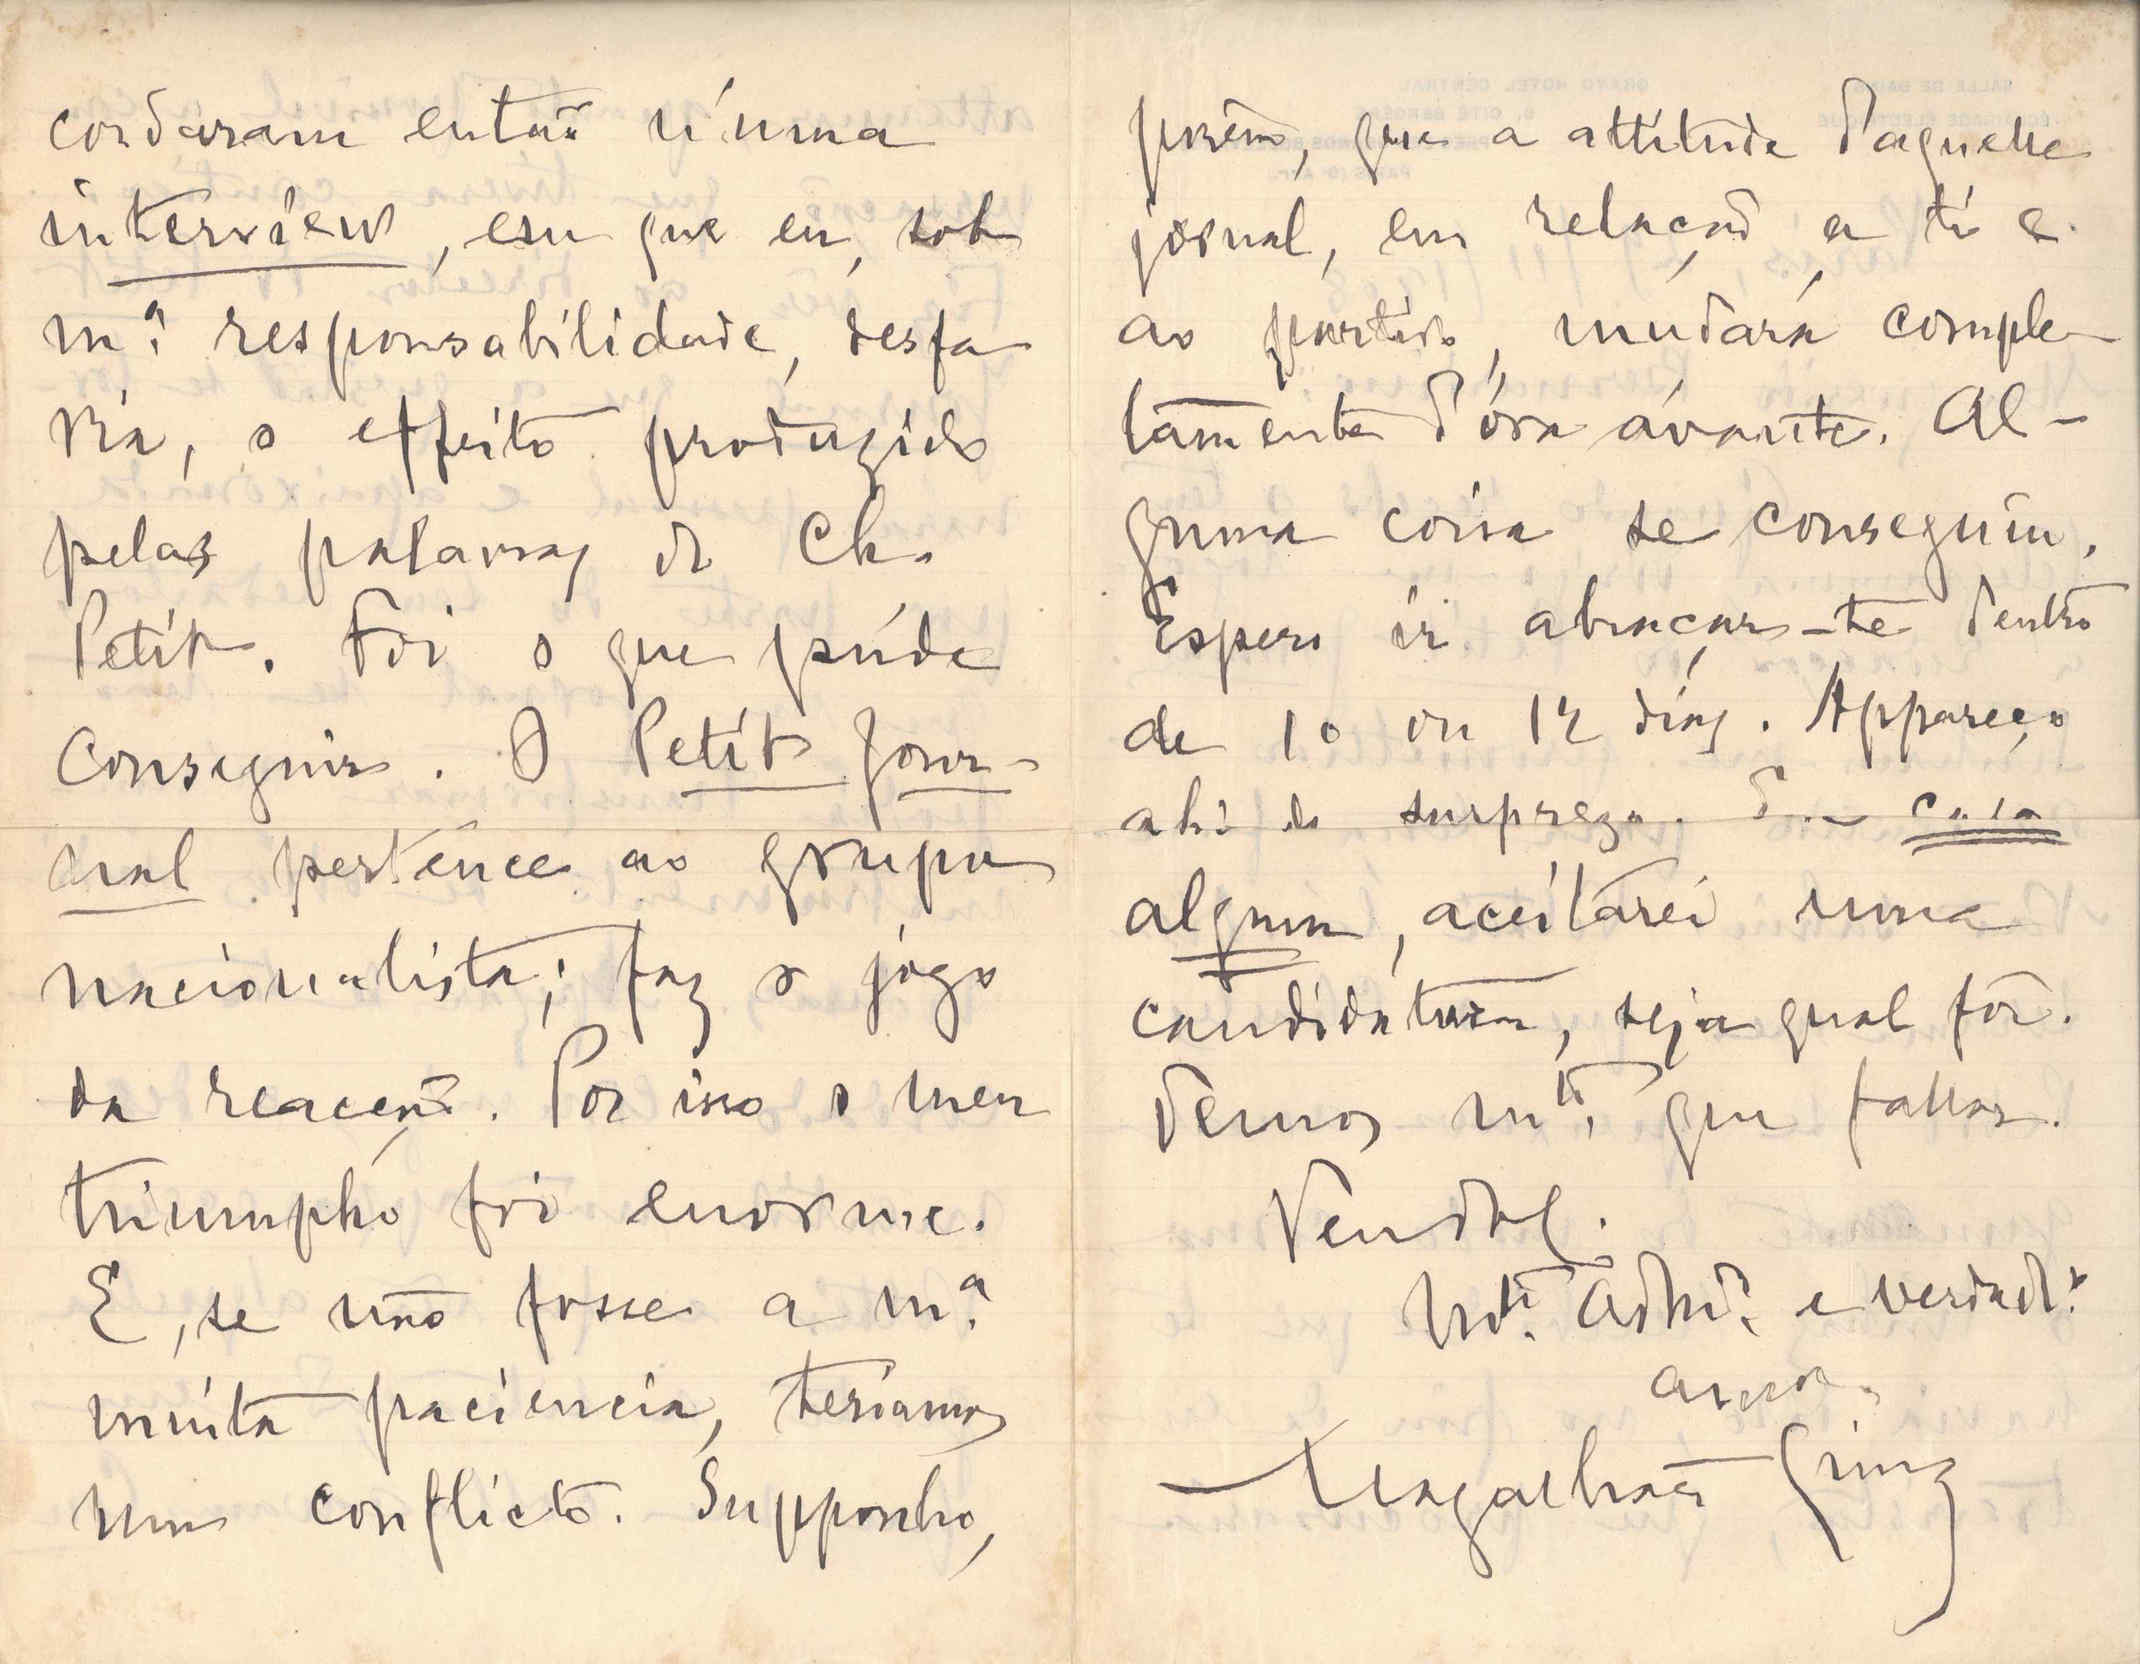 cordaram então n'uma
interview, em que eu, sob
m.ª responsabilidade, desfa
ria, o effeito produzido
pelas palavras de Ch.
Petit. Foi o que púde
conseguir. O Petit Jour-
nal pertence ao grupo
nacionalista; faz o jogo
da reacção. Por isso o meu
triumpho foi enorme.
E, se não fosse a m.ª
muita paciencia, teriamos
um conflicto. Supponho,
porêm, que a attitude d'aquelle
jornal, em relação a ti e
ao partido, mudará comple-
tamente d'óra ávante. Al-
guma coisa se conseguiu.
Espero ir abraçar-te dentro
de 10 ou 12 dias. Appareço
ahi de surpreza. Em caso
algum, aceitarei uma
candidatura, seja qual fôr.
Temos m.to que fallar.
M.to adm.or e verdad.o
am.o
Magalhães Lima
GRAND HOTEL CENTRAL
SALLE DE BAINS